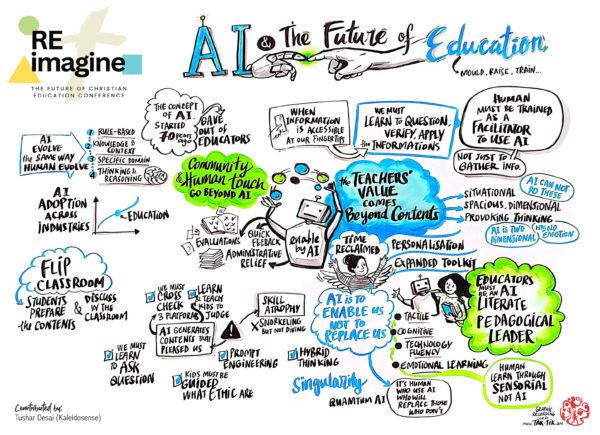 RE
imagine
THE FUTURE OF CHRISTIAN
EDUCATION CONFERENCE
AI & The Future of Education
MOULD. RAISE. TRAIN...
AI
EVOLVE
the SAME WAY
HUMAN EVOLVE
1 RULE-BASED
2 KNOWLEDGE &
CONTEXT
3 SPECIFIC DOMAIN
4 THINKING &
REASONING
THE CONCEPT
OF AI
STARTED
70 years ago
GAVE
OUT OF
EDUCATORS
WHEN
INFORMATION
IS ACCESSIBLE
AT OUR FINGERTIPS
WE MUST
LEARN TO QUESTION,
VERIFY, APPLY
the INFORMATIONS
HUMAN
MUST BE TRAINED
AS A
FACILITATOR
TO USE AI
NOT JUST TO
GATHER INFO.
AI
ADOPTION
ACROSS
INDUSTRIES
EDUCATION
Community
& Human touch
GO BEYOND AI
EVALUATIONS
QUICK
FEEDBACK
ADMINISTRATIVE
RELIEF
enable by
AI
the TEACHERS'
VALUE
COMES
Beyond Contents
SITUATIONAL
SPACIOUS. DIMENSIONAL
PROVOKING THINKING
AI CAN NOT
DO THESE
AI IS TWO
DIMENSIONAL
NO
EMOTION
TIME
RECLAIMED
PERSONALISATION
EXPANDED TOOLKIT
FLIP
CLASSROOM
STUDENTS
PREPARE
the CONTENTS
&
DISCUSS
IN the
CLASSROOM
WE MUST
CROSS
CHECK
3 PLATFORMS
LEARN
& TEACH
KIDS TO
JUDGE
AI GENERATES
CONTENTS THAT
PLEASED US
SKILL
ATROPHY
SNORKELING
BUT NOT DIVING
AI IS TO
ENABLE US
NOT TO
REPLACE US
EDUCATORS
MUST BE
AN AI
LITERATE
PEDAGOGICAL
LEADER
TACTILE
COGNITIVE
TECHNOLOGY
FLUENCY
EMOTIONAL LEARNING
WE MUST
LEARN
to ASK
QUESTION
PROMPT
ENGINEERING
HYBRID
THINKING
KIDS MUST BE
GUIDED
WHAT ETHIC ARE
Singularity
QUANTUM AI
IT'S HUMAN
WHO USE AI
WHO WILL
REPLACE THOSE
WHO DON'T
HUMAN
LEARN THROUGH
SENSORIAL
NOT AI
Contributed by:
Tushar Desai (Kaleidosense)
GRAPHIC
RECORDING
www.TAK-TIK.am